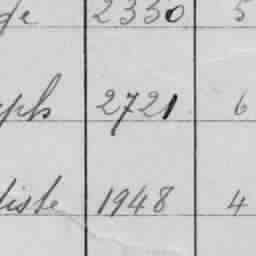 ge 2330 5
eph 2721 6
tiste 1948 4